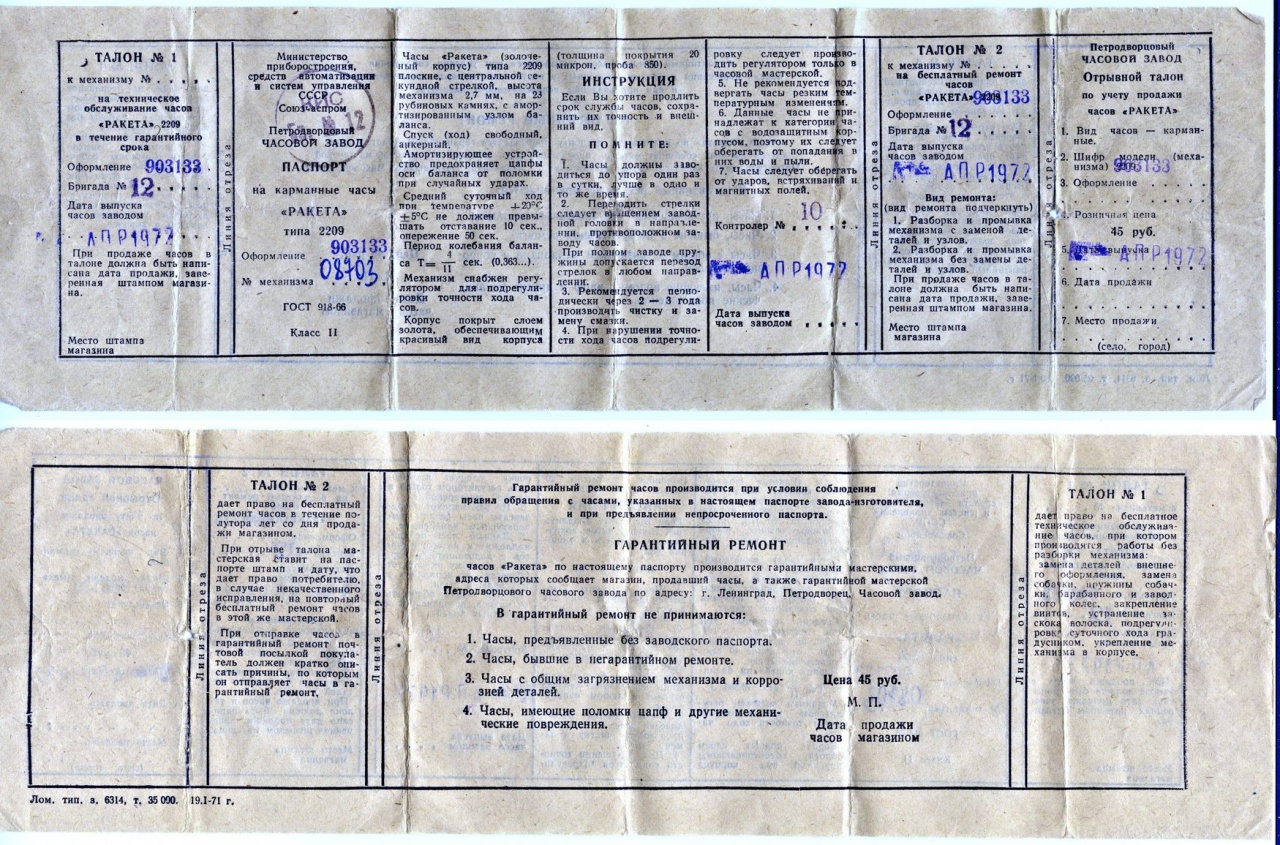 ТАЛОН № 1
к механизму № . . . . .
на техническое
обслуживание часов
«РАКЕТА» 2209
в течение гарантийного
срока
Оформление 903133
Бригада № 12 . . . . .
Дата выпуска
часов заводом
АПР1972
При продаже часов в
талоне должна быть напи-
сана дата продажи, заве-
ренная штампом магази-
на.
Место штампа
магазина
Линия отреза
Министерство
приборостроения,
средств автоматизации
и систем управления
СССР
Союзчаспром
Петродворцовый
ЧАСОВОЙ ЗАВОД
ПАСПОРТ
на карманные часы
«РАКЕТА»
типа 2209
903133
Оформление
№ механизма 08703.
ГОСТ 918-66
Класс II
Часы «Ракета» (золоче-
ный корпус) типа 2209
плоские, с центральной се-
кундной стрелкой, высота
механизма 2,7 мм, на 23
рубиновых камнях, с амор-
тизированным узлом ба-
ланса.
Спуск (ход) свободный,
анкерный.
Амортизирующее устрой-
ство предохраняет цапфы
оси баланса от поломки
при случайных ударах.
Средний суточный ход
при температуре +20°С
±5°С не должен превы-
шать отставание 10 сек.,
опережение 50 сек.
Период колебания балан-
са Т= 4/11 сек. (0,363...).
Механизм снабжен регу-
лятором для подрегули-
ровки точности хода ча-
сов.
Корпус покрыт слоем
золота, обеспечивающим
красивый вид корпуса
(толщина покрытия 20
микрон, проба 850).
ИНСТРУКЦИЯ
Если Вы хотите продлить
срок службы часов, сохра-
нить их точность и внеш-
ний вид.
ПОМНИТЕ:
1. Часы должны заво-
диться до упора один раз
в сутки, лучше в одно и
то же время.
2. Переводить стрелки
следует вращением завод-
ной головки в направле-
нии, противоположном за-
воду часов.
При полном заводе пру-
жины допускается перевод
стрелок в любом направ-
лении.
3. Рекомендуется перио-
дически через 2 — 3 года
производить чистку и за-
мену смазки.
4. При нарушении точно-
сти хода часов подрегули-
ровку следует произво-
дить регулятором только в
часовой мастерской.
5. Не рекомендуется под-
вергать часы резким тем-
пературным изменениям.
6. Данные часы не при-
надлежат к категории ча-
сов с водозащитным кор-
пусом, поэтому их следует
оберегать от попадания в
них воды и пыли.
7. Часы следует оберегать
от ударов, встряхиваний и
магнитных полей.
10
Контролер № . . . . .
АПР1972
Дата выпуска
часов заводом . . . . .
ТАЛОН № 2
к механизму № . . . . .
на бесплатный ремонт
часов
«РАКЕТА» 903133
Оформление . . . . .
Бригада № 12 . . . . .
Дата выпуска
часов заводом
АПР1972
Вид ремонта:
(вид ремонта подчеркнуть)
1. Разборка и промывка
механизма с заменой де-
талей и узлов.
2. Разборка и промывка
механизма без замены де-
талей и узлов.
При продаже часов в та-
лоне должна быть напи-
сана дата продажи, заве-
ренная штампом магазина.
Место штампа
магазина
Линия отреза
Петродворцовый
ЧАСОВОЙ ЗАВОД
Отрывной талон
по учету продажи
часов «РАКЕТА»
1. Вид часов — карман-
ные.
2. Шифр модели (меха-
низма) 2209 903133
3. Оформление . . . . .
4. Розничная цена
45 руб.
5. Дата выпуска
АПР1972
6. Дата продажи
7. Место продажи
(село, город)
Линия отреза
ТАЛОН № 2
дает право на бесплатный
ремонт часов в течение по-
лутора лет со дня прода-
жи магазином.
При отрыве талона ма-
стерская ставит на пас-
порте штамп и дату, что
дает право потребителю,
в случае некачественного
исправления, на повторный
бесплатный ремонт часов
в этой же мастерской.
При отправке часов в
гарантийный ремонт поч-
товой посылкой покупа-
тель должен кратко опи-
сать причины, по которым
он отправляет часы в га-
рантийный ремонт.
Линия отреза
Линия отреза
Гарантийный ремонт часов производится при условии соблюдения
правил обращения с часами, указанных в настоящем паспорте завода-изготовителя,
и при предъявлении непросроченного паспорта.
ГАРАНТИЙНЫЙ РЕМОНТ
часов «Ракета» по настоящему паспорту производится гарантийными мастерскими,
адреса которых сообщает магазин, продавший часы, а также гарантийной мастерской
Петродворцового часового завода по адресу: г. Ленинград, Петродворец, Часовой завод.
В гарантийный ремонт не принимаются:
1. Часы, предъявленные без заводского паспорта.
2. Часы, бывшие в негарантийном ремонте.
3. Часы с общим загрязнением механизма и корро-
зией деталей.
4. Часы, имеющие поломки цапф и другие механи-
ческие повреждения.
Цена 45 руб.
М. П.
Дата продажи
часов магазином
Линия отреза
ТАЛОН № 1
дает право на бесплатное
техническое обслужива-
ние часов, при котором
производятся работы без
разборки механизма:
замена деталей внешне-
го оформления, замена
собачки, пружины собач-
ки, барабанного и завод-
ного колес, закрепление
винтов, устранение за-
скока волоска, подрегули-
ровка суточного хода гра-
дусником, укрепление ме-
ханизма в корпусе.
Лом. тип. з. 6314, т. 35 000. 19.I-71 г.